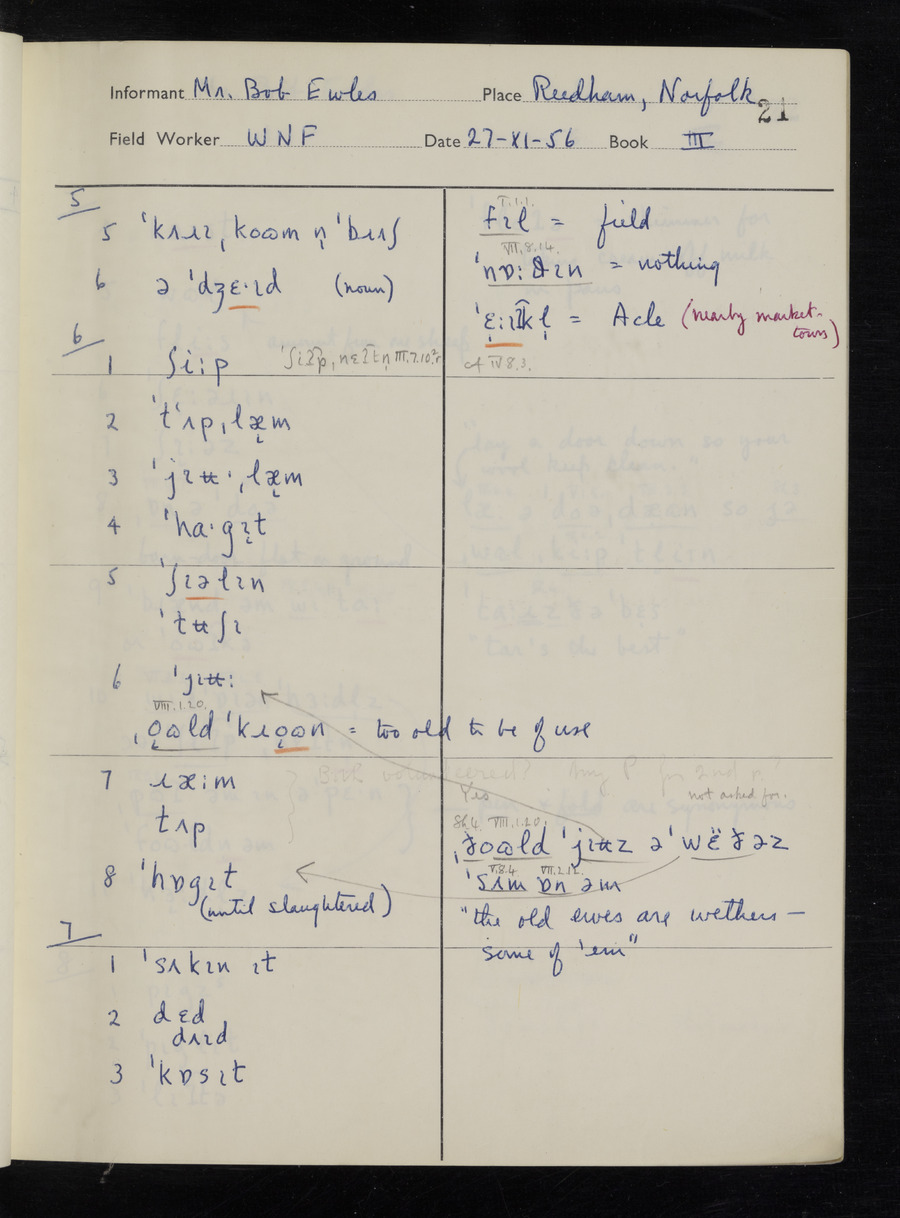 Informant Mr. Bob Ewles Place Reedham, Norfolk
21
Field Worker WNF Date 27-XI-56 Book III
5
5 ˈkʌɹɪ,koωm n̩ ˈbɹɪʃ
6 ə ˈdʒɛ·ɪd (noun)
6
1 ʃi:p
2 ˈtʻʌp,læm
3 ˈjɪʉ·,læm
4 ˈha·gɪt
5 ˈʃɪəlɪn
ˈtʉʃɪ
6 ˈjɪʉ:
VIII.1.20.
ˌoωld ˈkɪoωn = too old to be of use
7 ɹæ:m
tʌp
8 ˈhɒgɪt
(until slaughtered)
7
1 ˈsʌkɪn ɪt
2 dɛd
dʌɪd
3 ˈkɒsɪt
V.1.1.
fɪl = field
VII.8.14.
ˈnɒ:θɪn = nothing
= Acle (nearby market-
town)
cf IV 8.3.
Yes
not asked for.
VIII.1.20.
ˌðoωld ˈjɪʉz ə ˈwɛ̈ðəz
V.8.4 VII.2.12.
ˈsʌm ɒn əm
"the old ewes are wethers —
some of 'em"